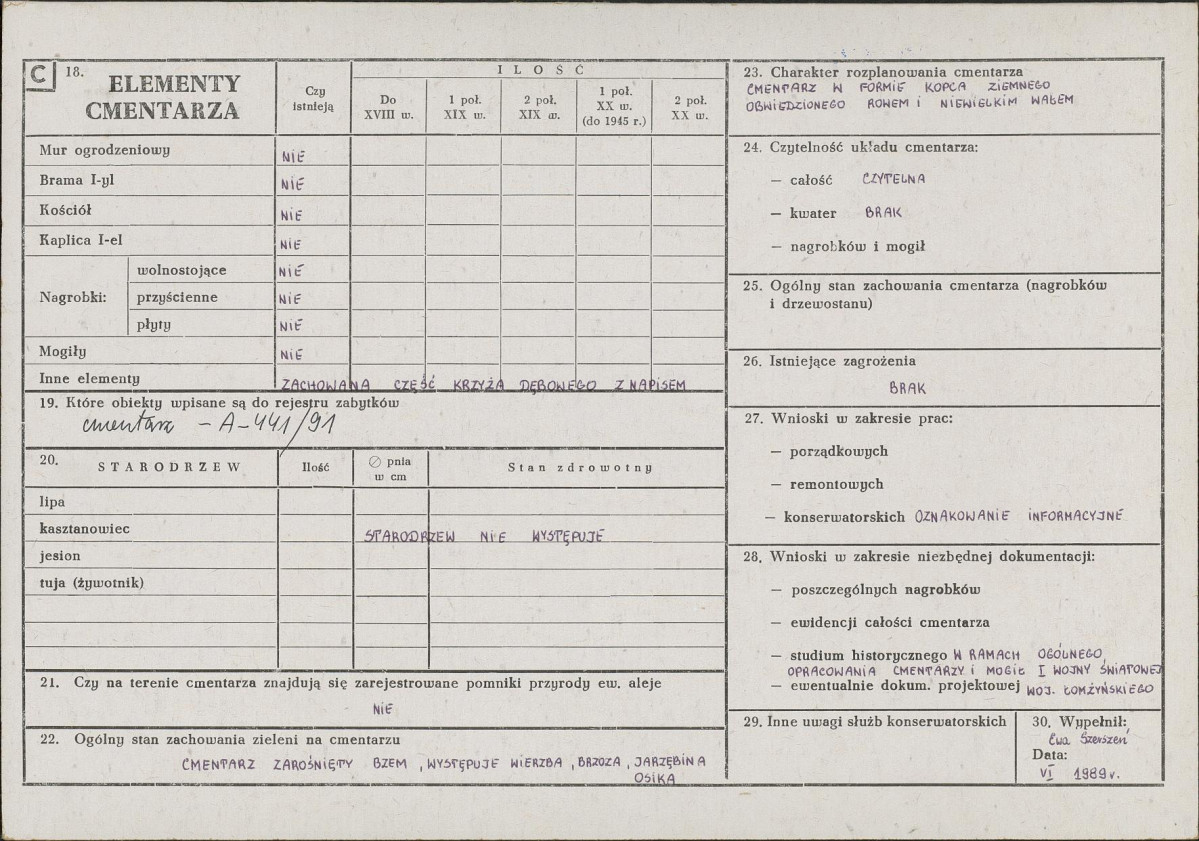 C 18.
ELEMENTY
CMENTARZA
Czy
istnieją
ILOŚĆ
Do
XVIII w.
1 poł.
XIX w.
2 poł.
XIX w.
1 poł.
XX w.
(do 1945 r.)
2 poł.
XX w.
Mur ogrodzeniowy NIE
Brama I-yl NIE
Kościół NIE
Kaplica I-el NIE
Nagrobki:
wolnostojące NIE
przyścienne NIE
płyty NIE
Mogiły NIE
Inne elementy ZACHOWANA CZĘŚĆ KRZYŻA DĘBOWEGO Z NAPISEM
19. Które obiekty wpisane są do rejestru zabytków
cmentarz – A-441/91
20. STARODRZEW Ilość ∅ pnia
w cm
Stan zdrowotny
lipa
kasztanowiec STARODRZEW NIE WYSTĘPUJE
jesion
tuja (żywotnik)
21. Czy na terenie cmentarza znajdują się zarejestrowane pomniki przyrody ew. aleje
NIE
22. Ogólny stan zachowania zieleni na cmentarzu
CMENTARZ ZAROŚNIĘTY BZEM, WYSTĘPUJE WIERZBA, BRZOZA, JARZĘBINA
OSIKA
23. Charakter rozplanowania cmentarza
CMENTARZ W FORMIE KOPCA ZIEMNEGO
OBWIEDZIONEGO ROWEM I NIEWIELKIM WAŁEM
24. Czytelność układu cmentarza:
— całość CZYTELNA
— kwater BRAK
— nagrobków i mogił
25. Ogólny stan zachowania cmentarza (nagrobków
i drzewostanu)
26. Istniejące zagrożenia
BRAK
27. Wnioski w zakresie prac:
— porządkowych
— remontowych
— konserwatorskich OZNAKOWANIE INFORMACYJNE
28. Wnioski w zakresie niezbędnej dokumentacji:
— poszczególnych nagrobków
— ewidencji całości cmentarza
— studium historycznego W RAMACH OGÓLNEGO
OPRACOWANIA CMENTARZY I MOGIŁ I WOJNY ŚWIATOWEJ
— ewentualnie dokum. projektowej WOJ. ŁOMŻYŃSKIEGO
29. Inne uwagi służb konserwatorskich
30. Wypełnił:
Ewa Szerszeń
Data:
VI 1989 r.